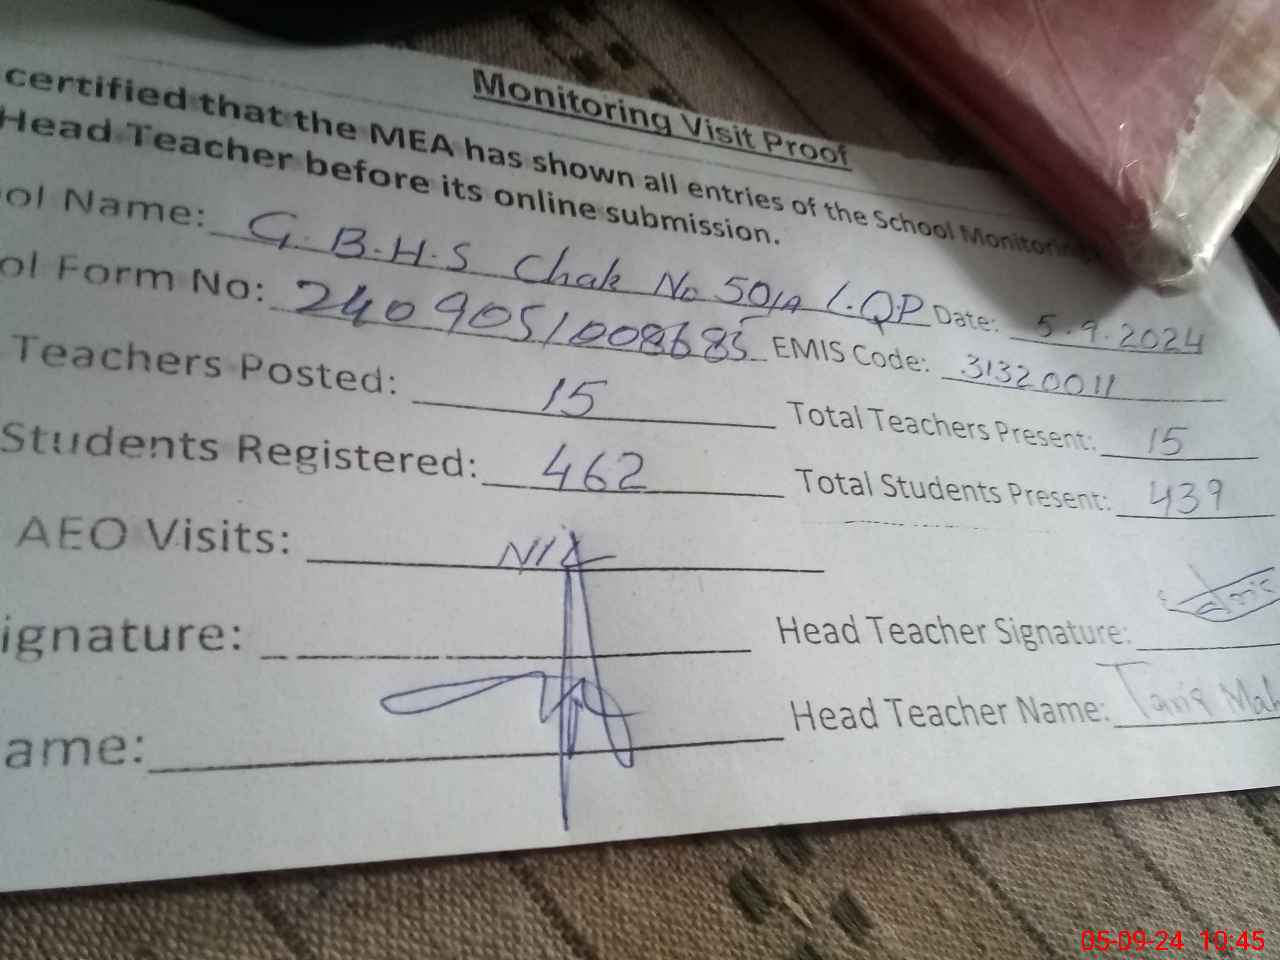 Monitoring Visit Proof
certified that the MEA has shown all entries of the School Monitoring
Head Teacher before its online submission.
ol Name: G.B.H.S Chak No 50/A L.Q.P Date: 5.9.2024
ol Form No: 2409051008685 EMIS Code: 31320011
Teachers Posted: 15 Total Teachers Present: 15
Students Registered: 462 Total Students Present: 439
AEO Visits: Nil
ignature: Head Teacher Signature:
ame: Head Teacher Name: Tariq Mal
05-09-24 10:45